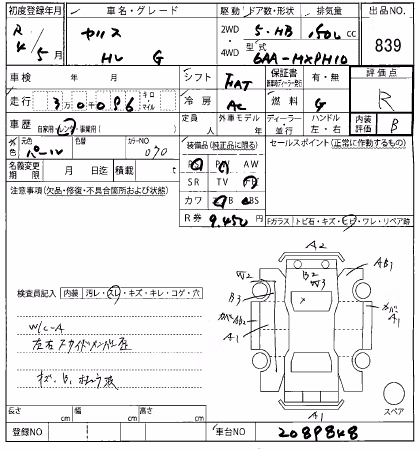 初度登録年月 車名・グレード 駆動 ドア数・形状 排気量 出品NO.
R 4/5月 ヤリス HV G 2WD 4WD 5・HB 1500 cc 839
型式 6AA-MXPH10
車検 年 月 シフト FAT 保証書 有・無 評価点
走行 3万0096 キロ マイル 冷房 AC 燃料 G R
車歴 自家用・レンタ・事業用( ) 定員 人 外車モデル 年 ディーラー・並行 ハンドル 左・右 内装評価 B
外色 元色 パール 色替 カラーNO 070 装備品(純正品に限る) セールスポイント(正常に作動するもの)
名義変更期限 月 日迄 積載 t
PS PW AW
SR TV
カワ
注意事項(欠品・修復・不具合箇所および状態) R券 9,450
Fガラス トビ石・キズ・ヒビ・ワレ・リペア跡
A2
W2 B2 W3 AB1
B3
A1 A1
検査員記入 内装 汚レ・スレ・キズ・キレ・コゲ・穴
W/C-A
キズ、
A1
スペア
長さ cm 幅 cm 高さ cm
登録NO 車台NO 2089848